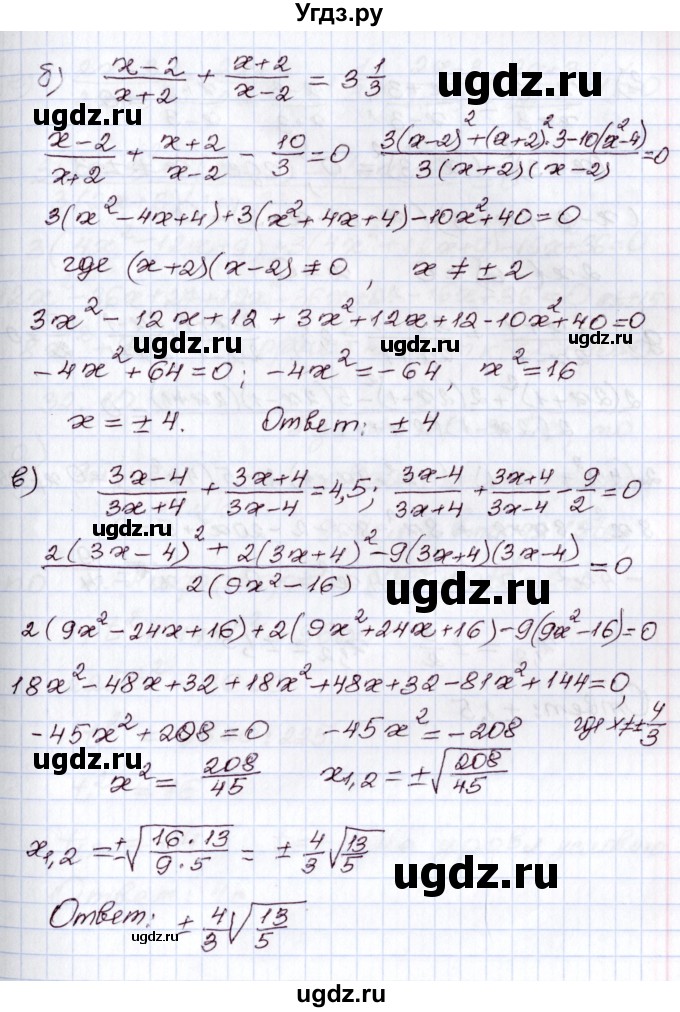 Угдз.ру
б) (x-2)/(x+2) + (x+2)/(x-2) = 3 1/3
ugdz.ru
ugdz.ru
(x-2)/(x+2) + (x+2)/(x-2) - 10/3 = 0   (3(x-2)² + (x+2)²·3 - 10(x²-4))/(3(x+2)(x-2)) = 0
3(x²-4x+4)+3(x²+4x+4)-10x²+40=0
где (x+2)(x-2)≠0, x≠±2
3x²-12x+12+3x²+12x+12-10x²+40=0
ugdz.ru
ugdz.ru
-4x²+64=0; -4x²=-64, x²=16
x=±4. Ответ: ±4
в) (3x-4)/(3x+4) + (3x+4)/(3x-4) = 4,5; (3x-4)/(3x+4) + (3x+4)/(3x-4) - 9/2 = 0
ugdz.ru
(2(3x-4)²+2(3x+4)²-9(3x+4)(3x-4))/(2(9x²-16)) = 0
ugdz.ru
2(9x²-24x+16)+2(9x²+24x+16)-9(9x²-16)=0
18x²-48x+32+18x²+48x+32-81x²+144=0,
-45x²+208=0   -45x²=-208   где x≠±4/3
ugdz.ru
x²= 208/45   x1,2=±√(208/45)
ugdz.ru
x1,2=±√((16·13)/(9·5)) = ±4/3 √(13/5)
ugdz.ru
Ответ: ±4/3 √(13/5)
ugdz.ru
ugdz.ru